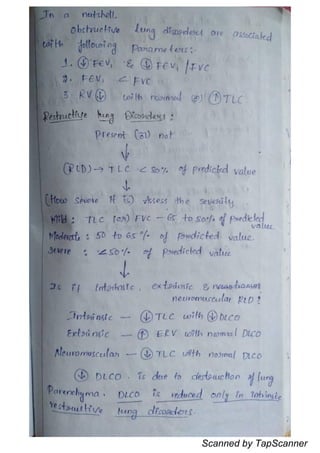 In a nutshell.
Obstructive lung disorders are associated
with following parameters:
1. ↓ FEV₁ & ↓ FEV₁ / FVC
2. FEV₁ < FVC
3. RV ↓ with normal (or) ↑ TLC
Restructive lung Disorders:
Present (or) not
↓
(RLD) → TLC < 80% of predicted value
↓
(How severe it is) Assess the severity
Mild: TLC (or) FVC - 65 to 80% of predicted
value
Moderate: 50 to 65% of predicted value.
Severe : <50% of predicted value
↓
Is it intrinsic, extrinsic &
neuromuscular RLD?
Intrinsic - ↓ TLC with ↓ DLCO
Extrinsic - ↑ ERV with normal DLCO
Neuromuscular - ↓ TLC with normal DLCO
↓ DLCO. is due to destruction of lung
Parenchyma. DLCO is reduced only in intrinsic
restructive lung disorders.
Scanned by TapScanner